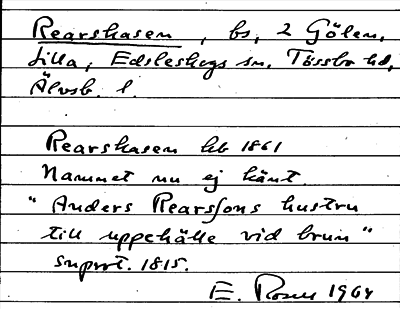 Rearshasen, bs, 2 Gölen,
Lilla, Edsleskogs sn, Tössbo hd,
Älvsb. l.
Rearshasen hb 1861
Namnet nu ej känt.
"Anders Rearssons hustru
till uppehälle vid brun"
snprt. 1815.
E. 1964